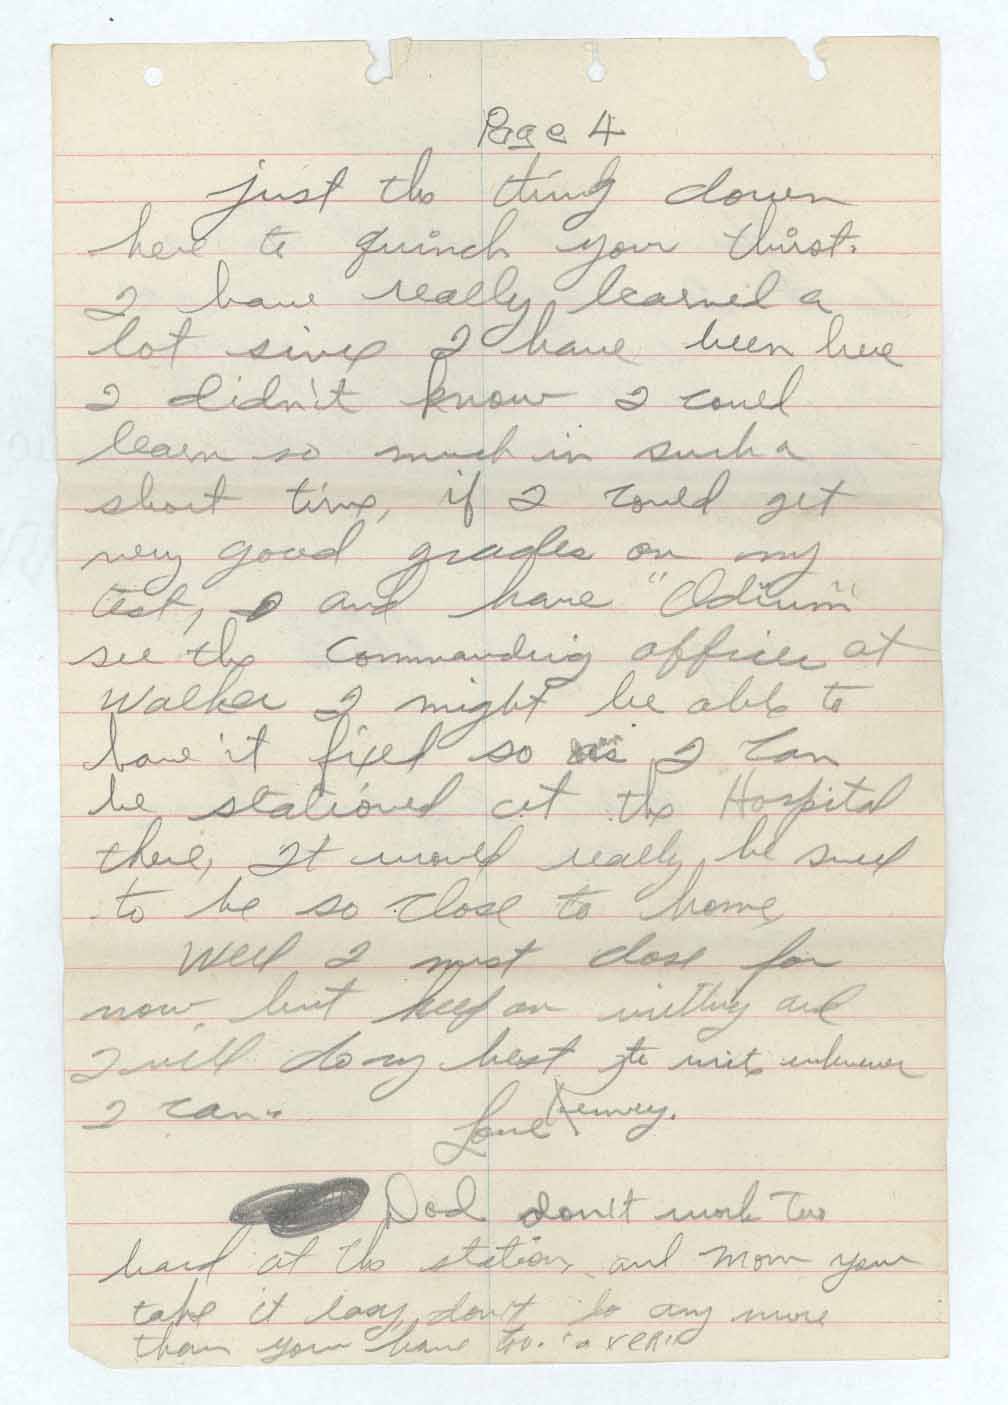 Page 4
just the thing down
here to quinch your thirst.
I have really learned a
lot since I have been here
I didn't know I could
learn so much in such a
short time, if I could get
very good grades on my
test, and have "Odium"
see the commanding officer at
Walker I might be able to
have it fixed so as I can
be stationed at the Hospital
there, It would really be swell
to be so close to home,
Well I must close for
now, but keep on writting and
I will do my best to write whenever
I can.
Love
Dad don't work too
hard at the station, and Mom your
take it easy, don't do any more
than your have too.